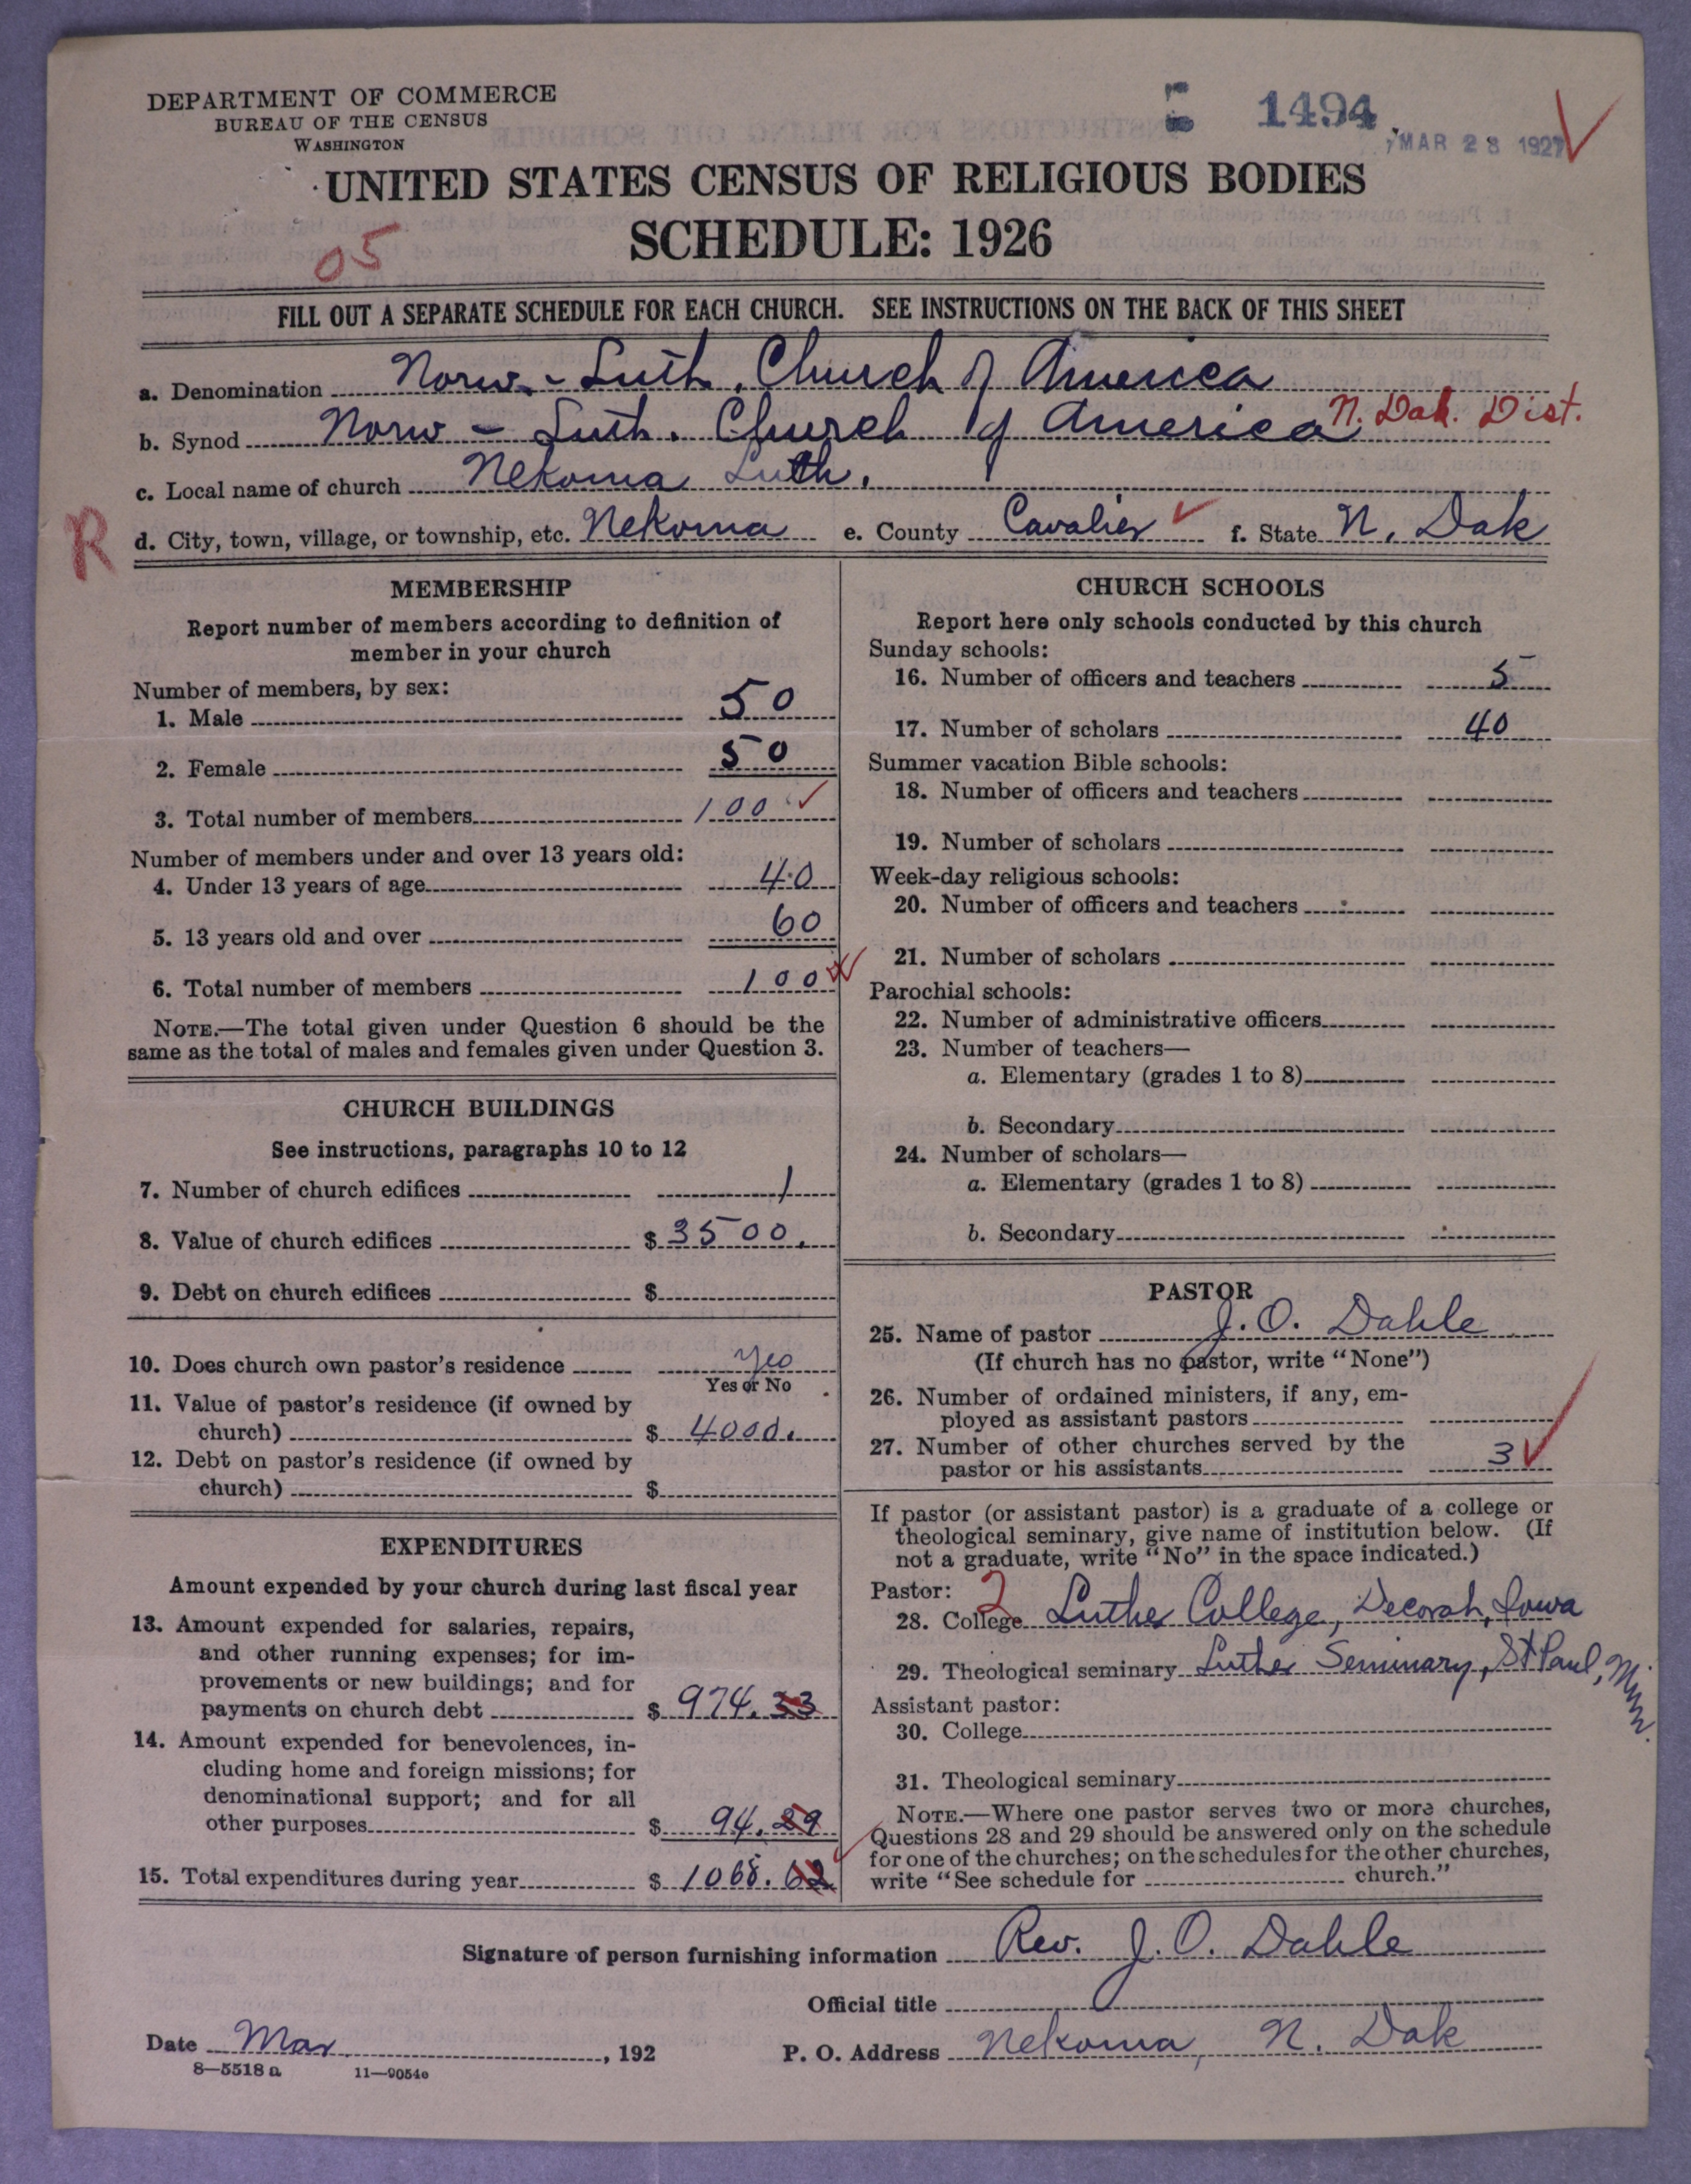 DEPARTMENT OF COMMERCE
BUREAU OF THE CENSUS
WASHINGTON
1494
MAR 28 1927
UNITED STATES CENSUS OF RELIGIOUS BODIES
SCHEDULE: 1926
05
FILL OUT A SEPARATE SCHEDULE FOR EACH CHURCH. SEE INSTRUCTIONS ON THE BACK OF THIS SHEET
a. Denomination Norw. - Luth. Church of America
b. Synod Norw - Luth. Church of America N. Dak. Dist.
c. Local name of church Nekoma Luth.
R
d. City, town, village, or township, etc. Nekoma e. County Cavalier f. State N. Dak
MEMBERSHIP
Report number of members according to definition of
member in your church
Number of members, by sex:
1. Male 50
2. Female 50
3. Total number of members 100
Number of members under and over 13 years old:
4. Under 13 years of age 40
5. 13 years old and over 60
6. Total number of members 100
NOTE.—The total given under Question 6 should be the
same as the total of males and females given under Question 3.
CHURCH BUILDINGS
See instructions, paragraphs 10 to 12
7. Number of church edifices 1
8. Value of church edifices $ 3500.
9. Debt on church edifices $
10. Does church own pastor's residence Yes
Yes or No
11. Value of pastor's residence (if owned by
church) $ 4000.
12. Debt on pastor's residence (if owned by
church) $
EXPENDITURES
Amount expended by your church during last fiscal year
13. Amount expended for salaries, repairs,
and other running expenses; for im-
provements or new buildings; and for
payments on church debt $ 974.33
14. Amount expended for benevolences, in-
cluding home and foreign missions; for
denominational support; and for all
other purposes $ 94.29
15. Total expenditures during year $ 1068.62
CHURCH SCHOOLS
Report here only schools conducted by this church
Sunday schools:
16. Number of officers and teachers 5
17. Number of scholars 40
Summer vacation Bible schools:
18. Number of officers and teachers
19. Number of scholars
Week-day religious schools:
20. Number of officers and teachers
21. Number of scholars
Parochial schools:
22. Number of administrative officers
23. Number of teachers—
a. Elementary (grades 1 to 8)
b. Secondary
24. Number of scholars—
a. Elementary (grades 1 to 8)
b. Secondary
PASTOR
25. Name of pastor J. O. Dahle
(If church has no pastor, write "None")
26. Number of ordained ministers, if any, em-
ployed as assistant pastors
27. Number of other churches served by the
pastor or his assistants 3
If pastor (or assistant pastor) is a graduate of a college or
theological seminary, give name of institution below. (If
not a graduate, write "No" in the space indicated.)
Pastor: 2
28. College Luther College, Decorah, Iowa
29. Theological seminary Luther Seminary, St Paul, Minn.
Assistant pastor:
30. College
31. Theological seminary
NOTE.—Where one pastor serves two or more churches,
Questions 28 and 29 should be answered only on the schedule
for one of the churches; on the schedules for the other churches,
write "See schedule for church."
Signature of person furnishing information Rev. J. O. Dahle
Official title
Date Mar , 192
P. O. Address Nekoma, N. Dak
8—5518 a 11—9054c